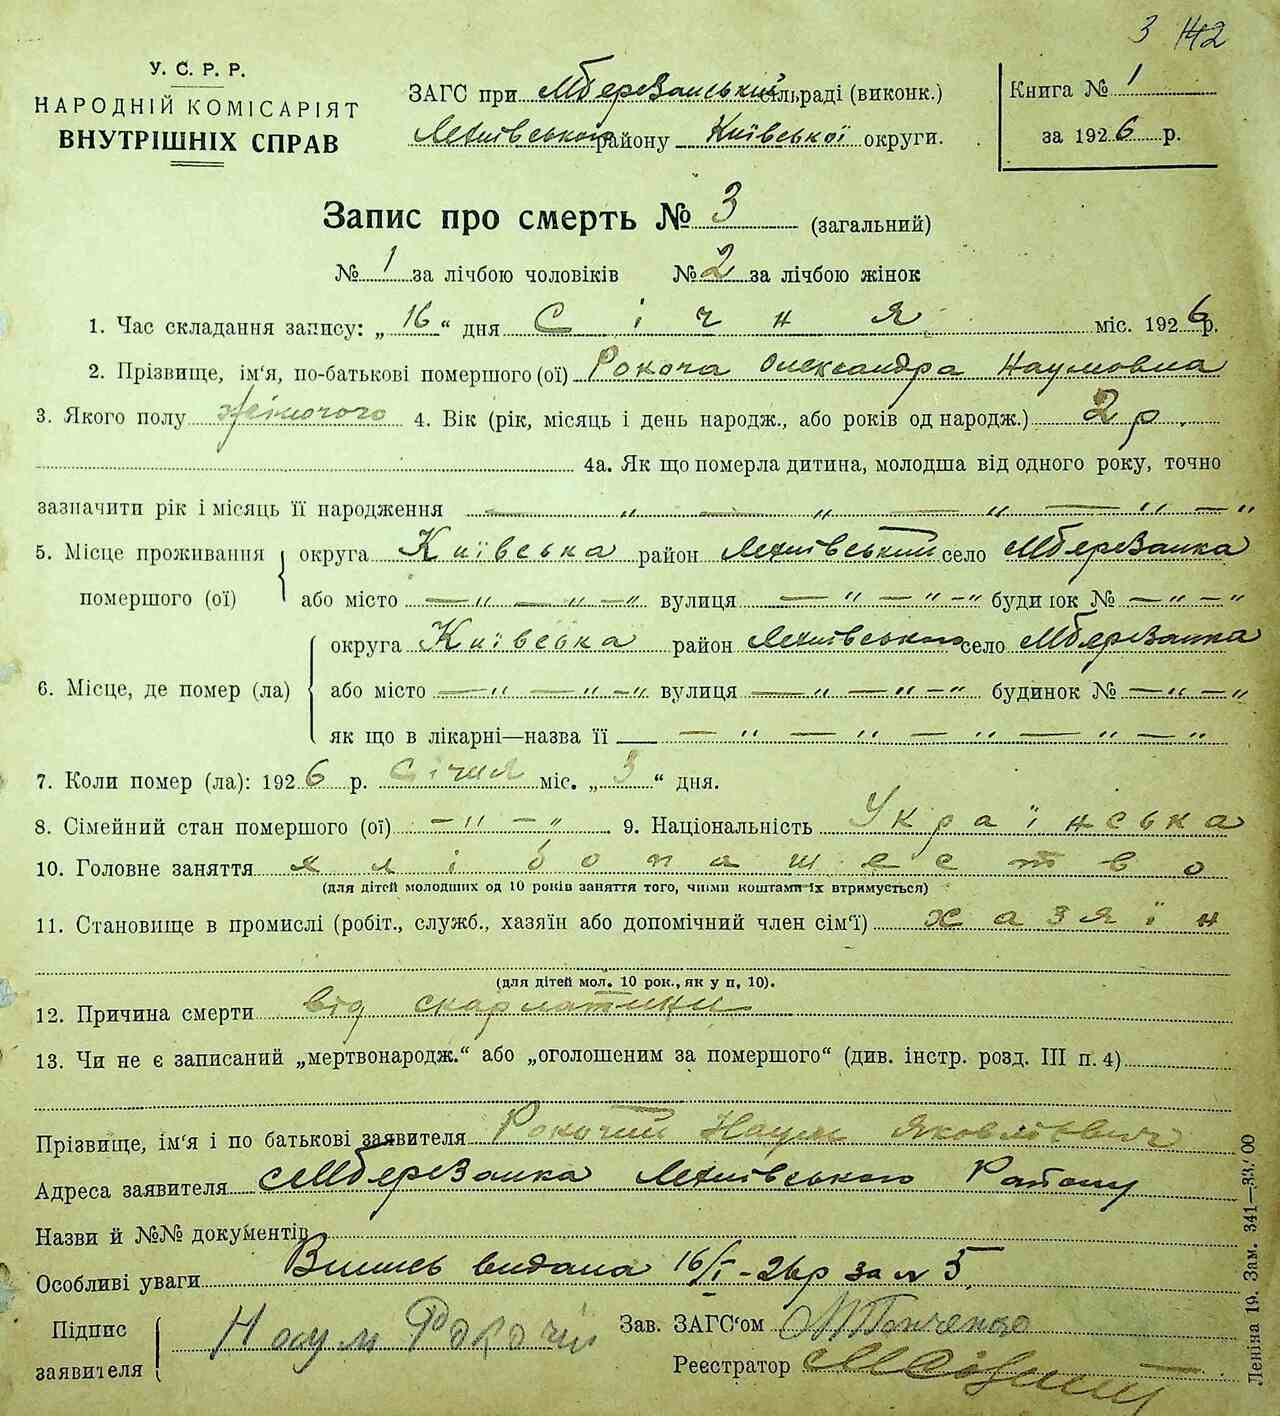 3 142
У. С. Р. Р.
НАРОДНІЙ КОМІСАРІЯТ
ВНУТРІШНІХ СПРАВ
ЗАГС при Мберезанській сільраді (виконк.)
району Київської округи.
Книга № 1
за 1926 р.
Запис про смерть № 3 (загальний)
№ 1 за лічбою чоловіків № 2 за лічбою жінок
1. Час складання запису: „16“ дня Січня міс. 1926 р.
2. Прізвище, ім'я, по-батькові помершого (ої) Рокоча Олександра Наумовна
3. Якого полу жіночого 4. Вік (рік, місяць і день народж., або років од народж.) 2 р.
4а. Як що померла дитина, молодша від одного року, точно
зазначити рік і місяць її народження — „ — „ — „ — „ — „
5. Місце проживання помершого (ої) округа Київська район село Мберезанка
або місто — „ — „ — „ вулиця — „ — „ — „ будинок № — „ — „
6. Місце, де помер (ла) округа Київська район село Мберезанка
або місто — „ — „ — „ вулиця — „ — „ — „ будинок № — „ — „
як що в лікарні—назва її — „ — „ — „ — „ — „
7. Коли помер (ла): 1926 р. Січня міс. „3“ дня.
8. Сімейний стан помершого (ої) — „ — „ 9. Національність Українська
10. Головне заняття хлібопашество
(для дітей молодших од 10 років заняття того, чиїми коштами їх втримується)
11. Становище в промислі (робіт., служб., хазяїн або допомічний член сім'ї) хазяїн
(для дітей мол. 10 рок., як у п, 10).
12. Причина смерти від скарлатини
13. Чи не є записаний „мертвонародж.“ або „оголошеним за помершого“ (див. інстр. розд. III п. 4)
Прізвище, ім'я і по батькові заявителя Рокочий Наум Яковлевич
Адреса заявителя с Мберезанка Району
Назви й №№ документів
Особливі уваги Випись видана 16/I-26р за № 5
Підпис заявителя Наум Рокочій
Зав. ЗАГС'ом
Реєстратор
Леніна 19. Зам. 341—33.00